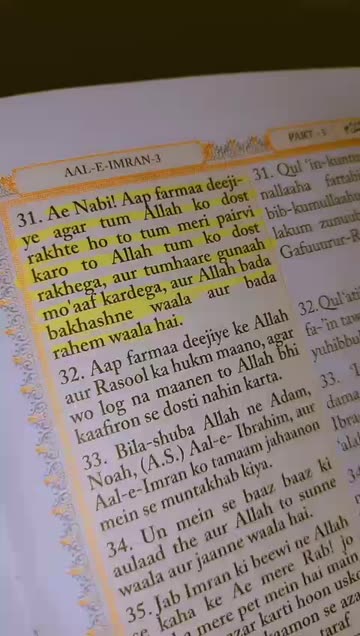 AAL-E-IMRAN-3
PART - 3
31. Ae Nabi! Aap farmaa deeji-
ye agar tum Allah ko dost
rakhte ho to tum meri pairvi
karo to Allah tum ko dost
rakhega, aur tumhaare gunaah
mo'aaf kardega, aur Allah bada
bakhashne waala aur bada
rahem waala hai.
32. Aap farmaa deejiye ke Allah
aur Rasool ka hukm maano, agar
wo log na maanen to Allah bhi
kaafiron se dosti nahin karta.
33. Bila-shuba Allah ne Adam,
Noah, (A.S.) Aal-e- Ibrahim, aur
Aal-e-Imran ko tamaam jahaanon
mein se muntakhab kiya.
34. Un mein se baaz baaz ki
aulaad the aur Allah to sunne
waala aur jaanne waala hai.
35. Jab Imran ki beewi ne Allah
se kaha ke Ae mere Rab! jo
mere pet mein hai main
karti hoon
se
taraf
31. Qul "in-kun
nallaaha
bib-kumullaahu
lakum zunu
Gafuuurur-R
32. Qul
fa-'in
yuhibbu
33.
dama
Ibra
34.